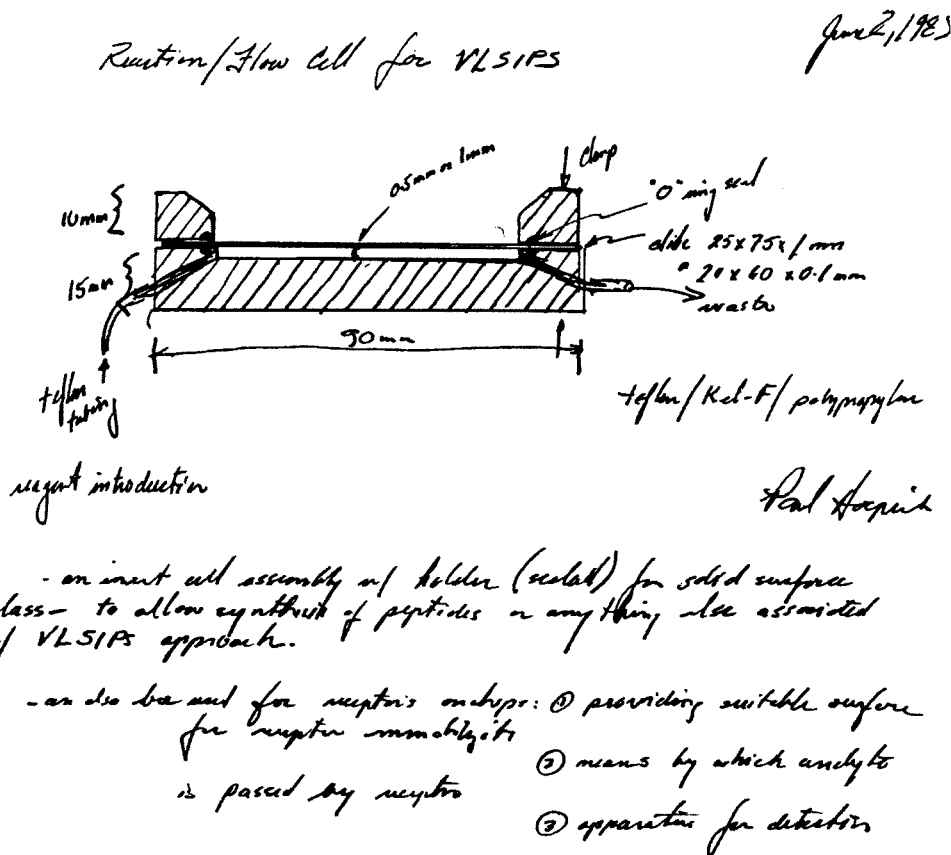 June 2, 1989
Reaction/Flow Cell for VLSIPS
0.5mm or 1mm
clamp
"O" ring seal
10mm
slide 25x75x1mm
15mm
20x60x0.1mm
waste
90mm
teflon
tubing
teflon/Kel-F/polypropylene
reagent introduction
Paul
- an inert cell assembly w/ holder (sealed) for solid surface
lass - to allow synthesis of peptides or anything else associated
w/ VLSIPS approach.
- an also be used for receptors on chips: ① providing suitable surface
for receptor
② means by which analyte
is passed by receptor
③ apparatus for detection